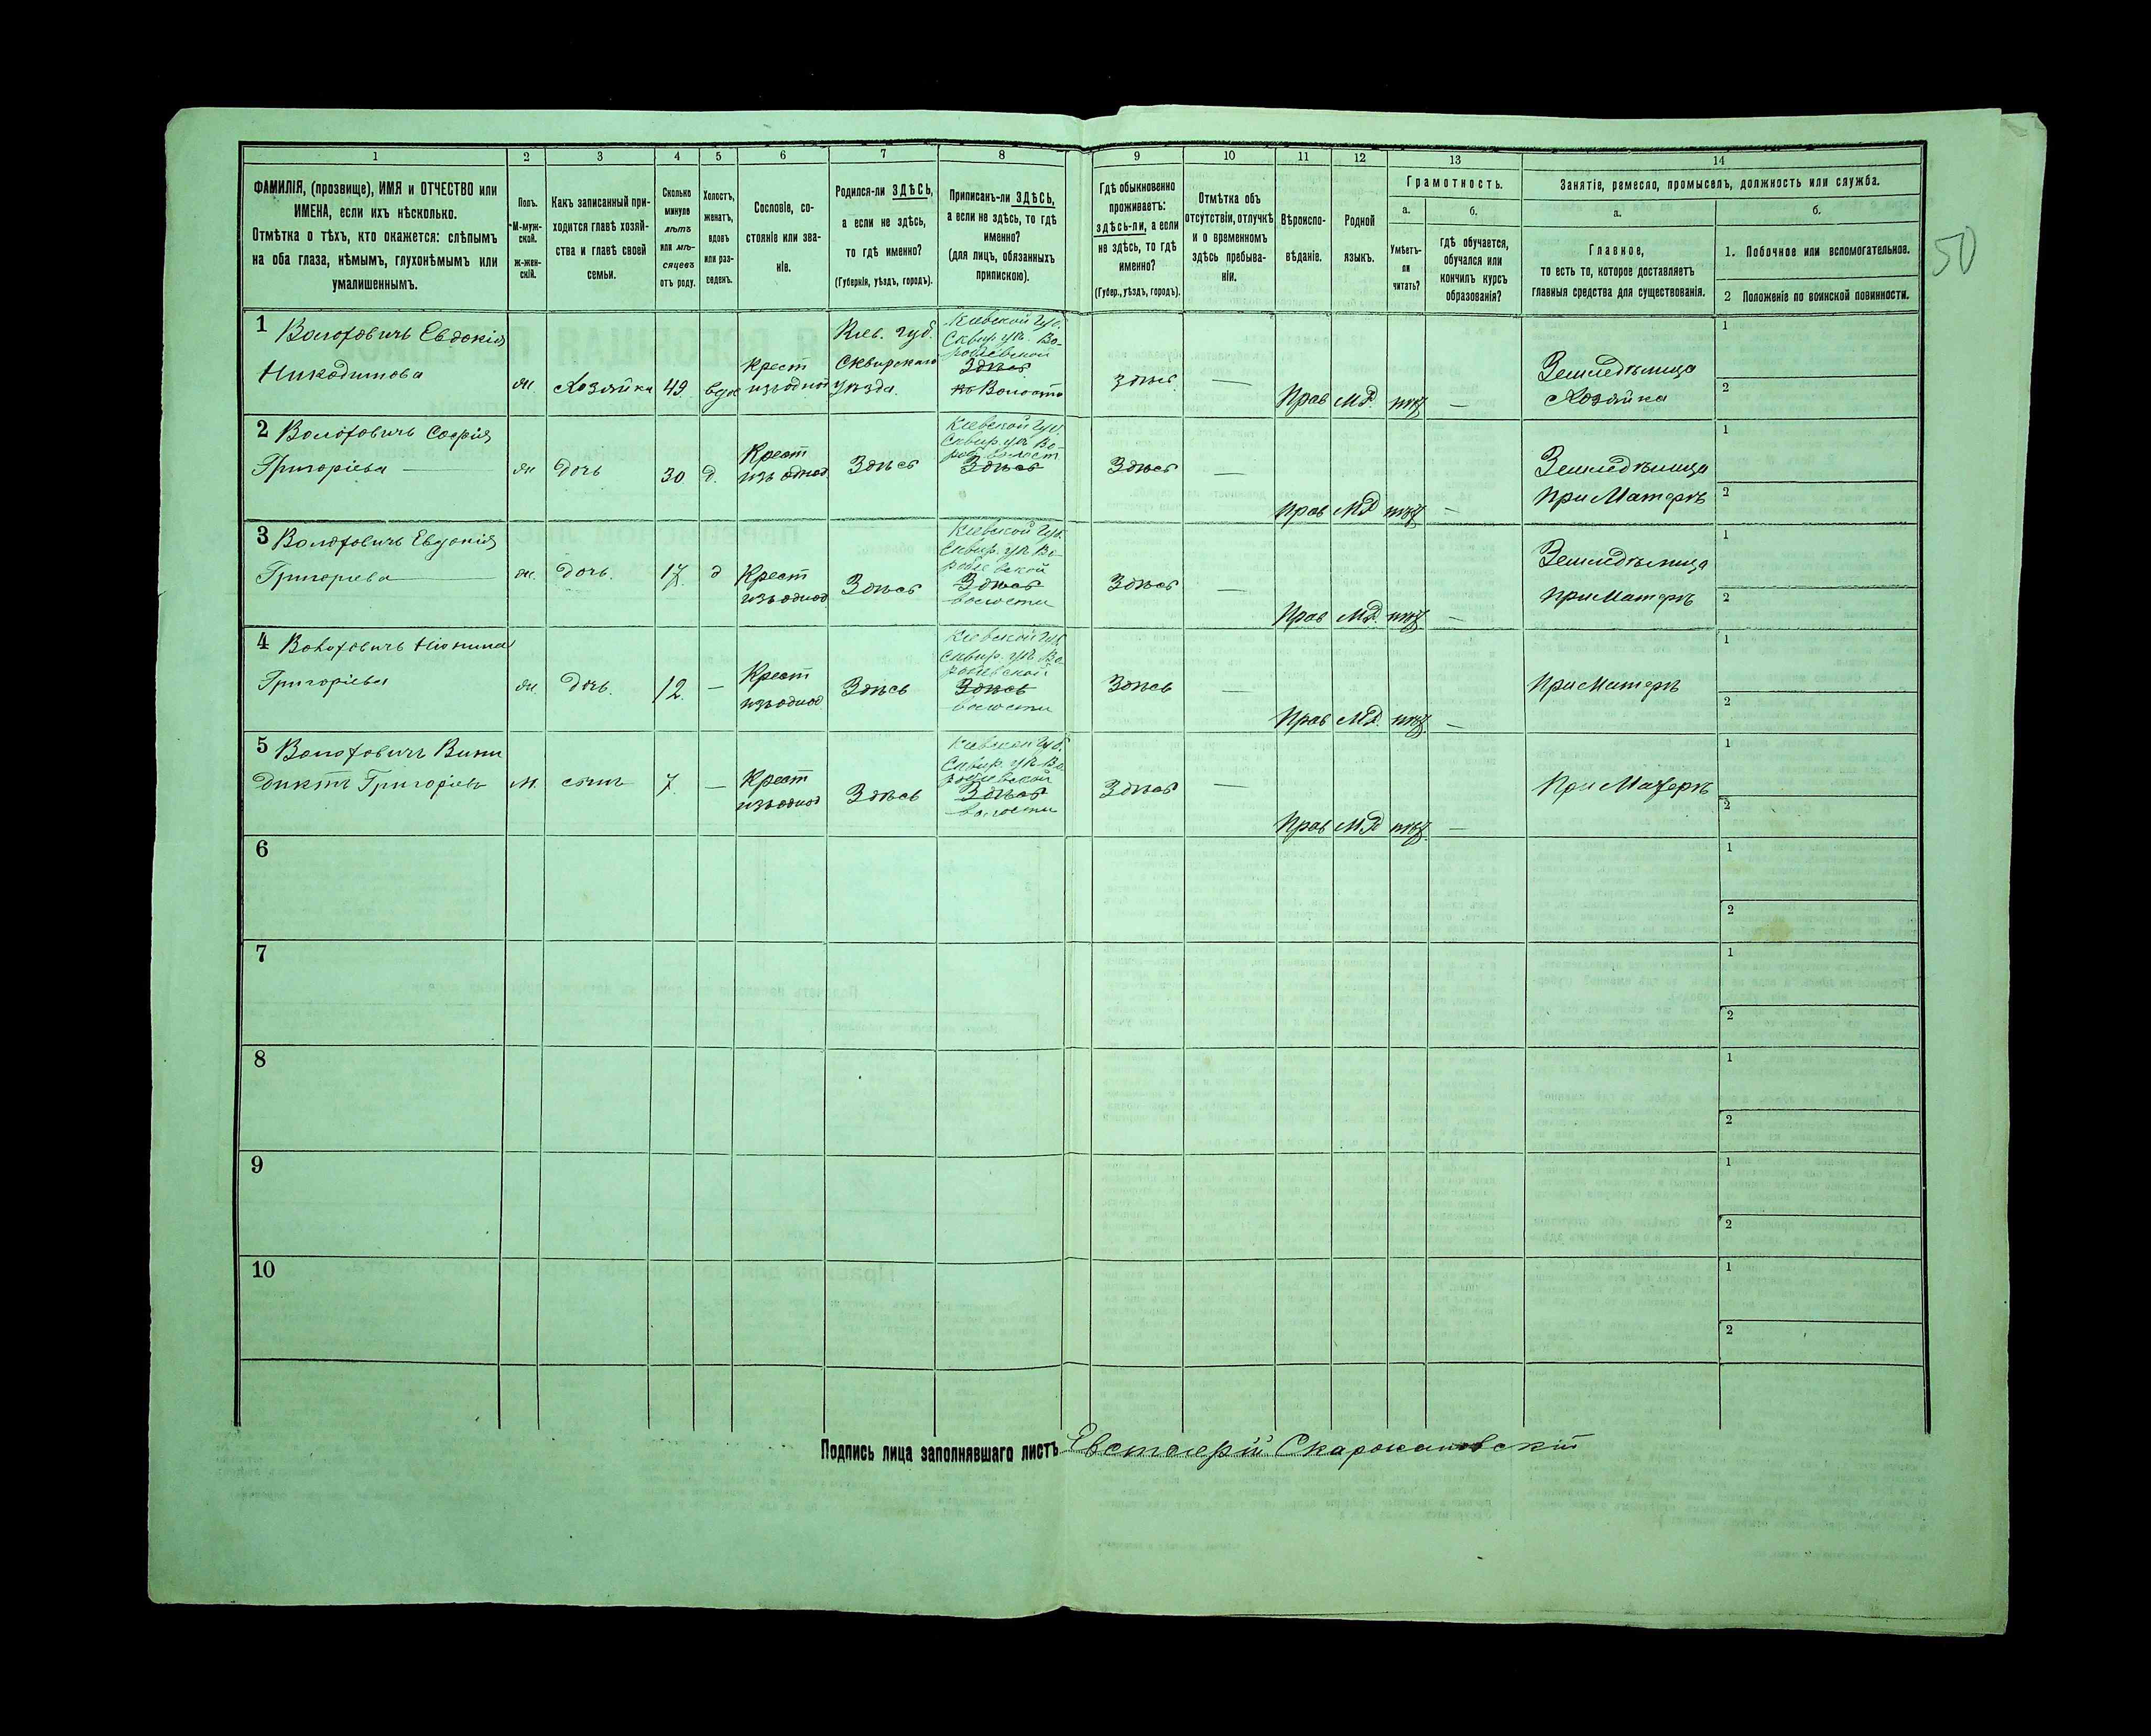 1 2 3 4 5 6 7 8 9 10 11 12 13 14
ФАМИЛІЯ, (прозвище), ИМЯ и ОТЧЕСТВО или
ИМЕНА, если ихъ нѣсколько.
Отмѣтка о тѣхъ, кто окажется: слѣпымъ
на оба глаза, нѣмымъ, глухонѣмымъ или
умалишеннымъ.
Полъ.
М-муж-
ской.
ж-жен-
скій.
Какъ записанный при-
ходится главѣ хозяй-
ства и главѣ своей
семьи.
Сколько
минуло
лѣтъ
или мѣ-
сяцевъ
отъ роду.
Холостъ,
женатъ,
вдовъ
или раз-
веденъ.
Сословіе, со-
стояніе или зва-
ніе.
Родился-ли ЗДѢСЬ,
а если не здѣсь,
то гдѣ именно?
(Губернія, уѣздъ, городъ).
Приписанъ-ли ЗДѢСЬ,
а если не здѣсь, то гдѣ
именно?
(для лицъ, обязанныхъ
припискою).
Гдѣ обыкновенно
проживаетъ:
здѣсь-ли, а если
не здѣсь, то гдѣ
именно?
(Губер., уѣздъ, городъ).
Отмѣтка объ
отсутствіи, отлучкѣ
и о временномъ
здѣсь пребыва-
ніи.
Вѣроиспо-
вѣданіе.
Родной
языкъ.
Грамотность.
а.
Умѣетъ-
ли
читать?
б.
гдѣ обучается,
обучался или
кончилъ курсъ
образованія?
Занятіе, ремесло, промыселъ, должность или служба.
а.
Главное,
то есть то, которое доставляетъ
главныя средства для существованія.
б.
1. Побочное или вспомогательное.
2 Положеніе по воинской повинности.
50
1 Волотовичъ Евдокія
Никодимова
ж. Хозяйка 49 вдов
Крест
изъ однод
Кіев. губ.
Сквирскаго
уѣзда.
Кіевской Губ.
Сквир. уѣ. Во-
робіевской
Здѣсь
Волости
здѣсь — Прав М.Р. нѣт —
Земледѣлица
Хозяйка
1
2
2 Волотовичъ Софія
Григоріева
ж Дочь 30 д.
Крест
изъ однод
Здѣсь
Кіевской Губ
Сквир. уѣ Во-
роб. волост
Здѣсь
Здѣсь — Прав М.Р нѣт —
Земледѣлица
при Матерѣ
1
2
3 Волотовичъ Евдокія
Григоріева
ж. Дочь. 17 д
Крест
изъ однод
Здѣсь
Кіевской Губ.
Сквир. уѣ Во-
робіевской
Здѣсь
волости
Здѣсь — Прав М.Р. нѣт —
Земледѣлица
при Матерѣ
1
2
4 Волотовичъ
Григоріева
ж. Дочь. 12 —
Крест
изъ однод
Здѣсь
Кіевской Губ
Сквир. уѣ Во-
робіевской
Здѣсь
волости
Здѣсь — Прав М.Р. нѣт —
При Матерѣ
1
2
5 Волотовичъ Вини
диктъ Григоріевъ
М. сынъ 7 —
Крест
изъ однод
Здѣсь
Кіевской Губ.
Сквир. уѣ Во-
робіевской
Здѣсь
волости
Здѣсь — Прав М.Р нѣт —
При Матерѣ
1
2
6
1
2
7
1
2
8
1
2
9
1
2
10
1
2
Подпись лица заполнявшаго листъ